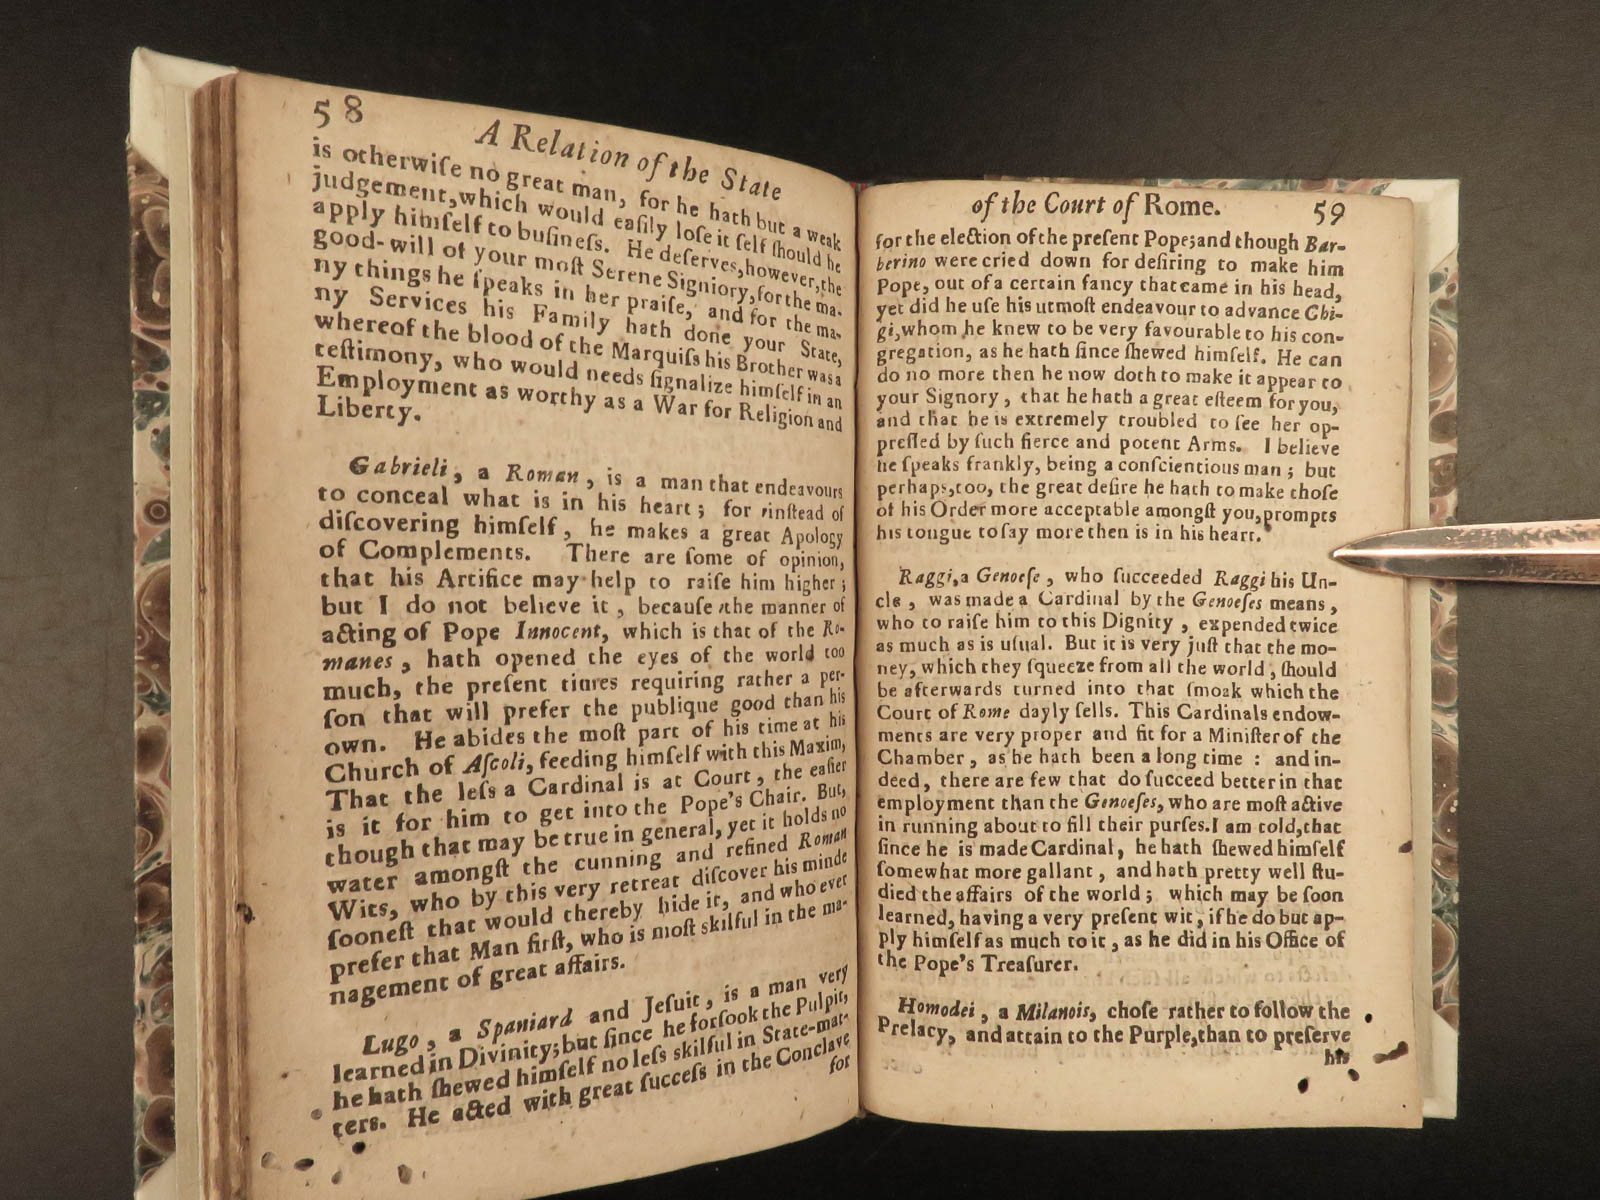 58
A Relation of the State
is otherwiſe no great man, for he hath but a weak
judgement,which would eaſily loſe it ſelf ſhould he
apply himſelf to buſineſs. He deſerves,however,the
good-will of your moſt Serene Signiory,for the ma-
ny things he ſpeaks in her praiſe, and for the ma-
ny Services his Family hath done your State,
whereof the blood of the Marquiſs his Brother was a
teſtimony, who would needs ſignalize himſelf in an
Employment as worthy as a War for Religion and
Liberty.
Gabrieli, a Roman, is a man that endeavours
to conceal what is in his heart; for inſtead of
diſcovering himſelf, he makes a great Apology
of Complements. There are ſome of opinion,
that his Artifice may help to raiſe him higher;
but I do not believe it, becauſe the manner of
acting of Pope Innocent, which is that of the Ro-
manes, hath opened the eyes of the world too
much, the preſent times requiring rather a per-
ſon that will prefer the publique good than his
own. He abides the moſt part of his time at his
Church of Aſcoli, feeding himſelf with this Maxim,
That the leſs a Cardinal is at Court, the eaſier
is it for him to get into the Pope's Chair. But,
though that may be true in general, yet it holds no
water amongſt the cunning and refined Roman
Wits, who by this very retreat diſcover his minde
ſooneſt that would thereby hide it, and who ever
prefer that Man firſt, who is moſt skilful in the ma-
nagement of great affairs.
Lugo, a Spaniard and Jeſuit, is a man very
learned in Divinity;but ſince he forſook the Pulpit,
he hath ſhewed himſelf no leſs skilful in State-mat-
ters. He acted with great ſucceſs in the Conclave
for
of the Court of Rome.
59
for the election of the preſent Pope;and though Bar-
berino were cried down for deſiring to make him
Pope, out of a certain fancy that came in his head,
yet did he uſe his utmoſt endeavour to advance Chi-
gi,whom he knew to be very favourable to his con-
gregation, as he hath ſince ſhewed himſelf. He can
do no more then he now doth to make it appear to
your Signory, that he hath a great eſteem for you,
and that he is extremely troubled to ſee her op-
preſſed by ſuch fierce and potent Arms. I believe
he ſpeaks frankly, being a conſcientious man; but
perhaps,too, the great deſire he hath to make thoſe
of his Order more acceptable amongſt you,prompts
his tongue to ſay more then is in his heart.
Raggi,a Genoeſe, who ſucceeded Raggi his Un-
cle, was made a Cardinal by the Genoeſes means,
who to raiſe him to this Dignity, expended twice
as much as is uſual. But it is very juſt that the mo-
ney, which they ſqueeze from all the world, ſhould
be afterwards turned into that ſmoak which the
Court of Rome dayly ſells. This Cardinals endow-
ments are very proper and fit for a Miniſter of the
Chamber, as he hath been a long time: and in-
deed, there are few that do ſucceed better in that
employment than the Genoeſes, who are moſt active
in running about to fill their purſes.I am told,that
ſince he is made Cardinal, he hath ſhewed himſelf
ſomewhat more gallant, and hath pretty well ſtu-
died the affairs of the world; which may be ſoon
learned, having a very preſent wit, if he do but ap-
ply himſelf as much to it, as he did in his Office of
the Pope's Treaſurer.
Homodei, a Milanois, choſe rather to follow the
Prelacy, and attain to the Purple,than to preſerve
his